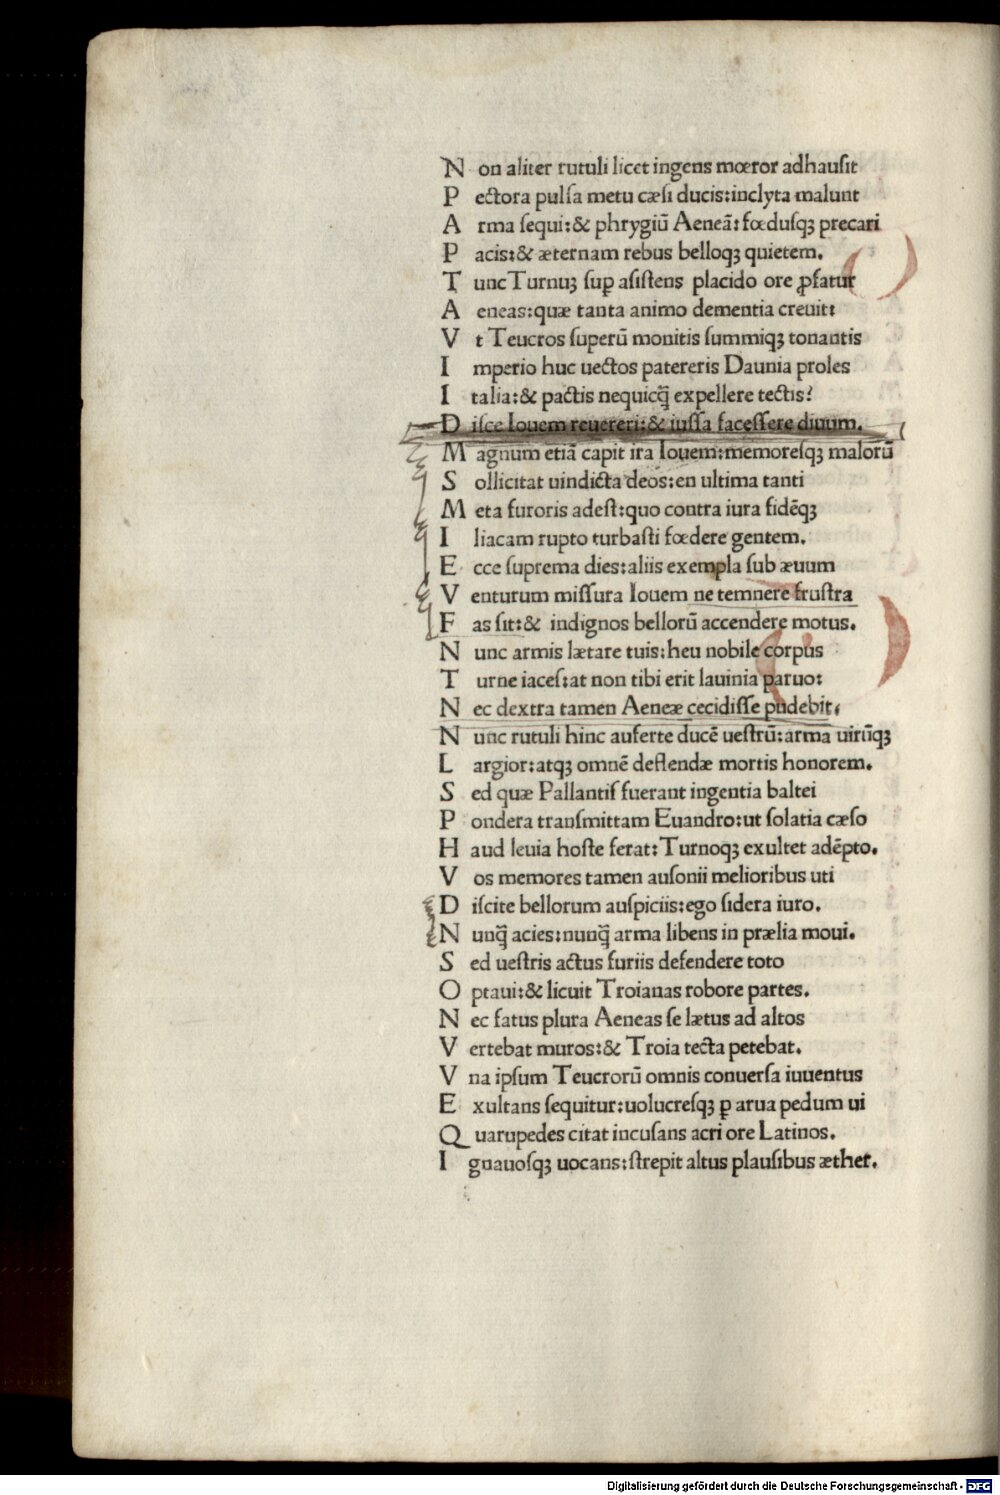 N on aliter rutuli licet ingens mœror adhauſit
P ectora pulſa metu cæſi ducis:inclyta malunt
A rma ſequi:& phrygiū Aeneã: fœduſqꝫ precari
P acis:& æternam rebus belloqꝫ quietem.
T unc Turnuꝫ suꝑ aſiſtens placido ore ꝓfatur
A eneas:quæ tanta animo dementia creuit:
V t Teucros ſuperū monitis ſummiqꝫ tonantis
I mperio huc uectos patereris Daunia proles
I talia:& pactis nequicq̄ expellere tectis?
D iſce Iouem reuereri:& iuſſa faceſſere diuum.
M agnum etiã capit ira Iouem:memoreſqꝫ malorū
S ollicitat uindicta deos:en ultima tanti
M eta furoris adeſt:quo contra iura fidēqꝫ
I liacam rupto turbaſti fœdere gentem.
E cce ſuprema dies:aliis exempla ſub æuum
V enturum miſſura Iouem ne temnere fruſtra
F as ſit:& indignos bellorū accendere motus.
N unc armis lætare tuis:heu nobile corpus
T urne iaceſ:at non tibi erit lauinia paruo:
N ec dextra tamen Aeneæ cecidiſſe pudebit:
N unc rutuli hinc auferte ducē ueſtrū:arma uirūqꝫ
L argior:atqꝫ omnē deflendæ mortis honorem.
S ed quæ Pallantiſ fuerant ingentia baltei
P ondera tranſmittam Euandro:ut ſolatia cæſo
H aud leuia hoſte ferat:Turnoqꝫ exultet adēpto.
V os memores tamen auſonii melioribus uti
D iſcite bellorum auſpiciis:ego ſidera iuro.
N unq̄ acies:nunq̄ arma libens in prælia moui.
S ed ueſtris actus furiis defendere toto
O ptaui:& licuit Troianas robore partes.
N ec fatus plura Aeneas ſe lætus ad altos
V ertebat muros:& Troia tecta petebat.
V na ipſum Teucrorū omnis conuerſa iuuentus
E xultans ſequitur:uolucreſqꝫ ꝑ arua pedum ui
Q uarupedes citat incuſans acri ore Latinos.
I gnauoſqꝫ uocans:ſtrepit altus plauſibus æther.
Digitalisierung gefördert durch die Deutsche Forschungsgemeinschaft - DFG